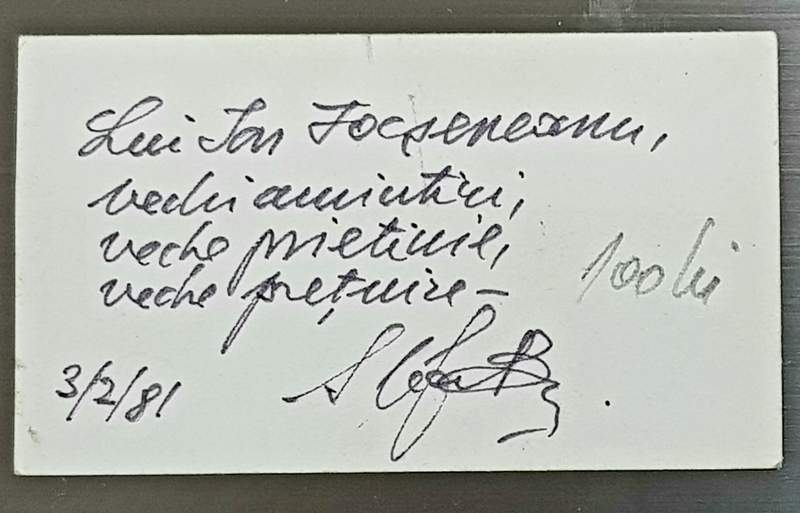 Lui Ion Focșeneanu,
vechi amintiri,
veche prietenie,
veche prețuire –
100 lei
3/2/81